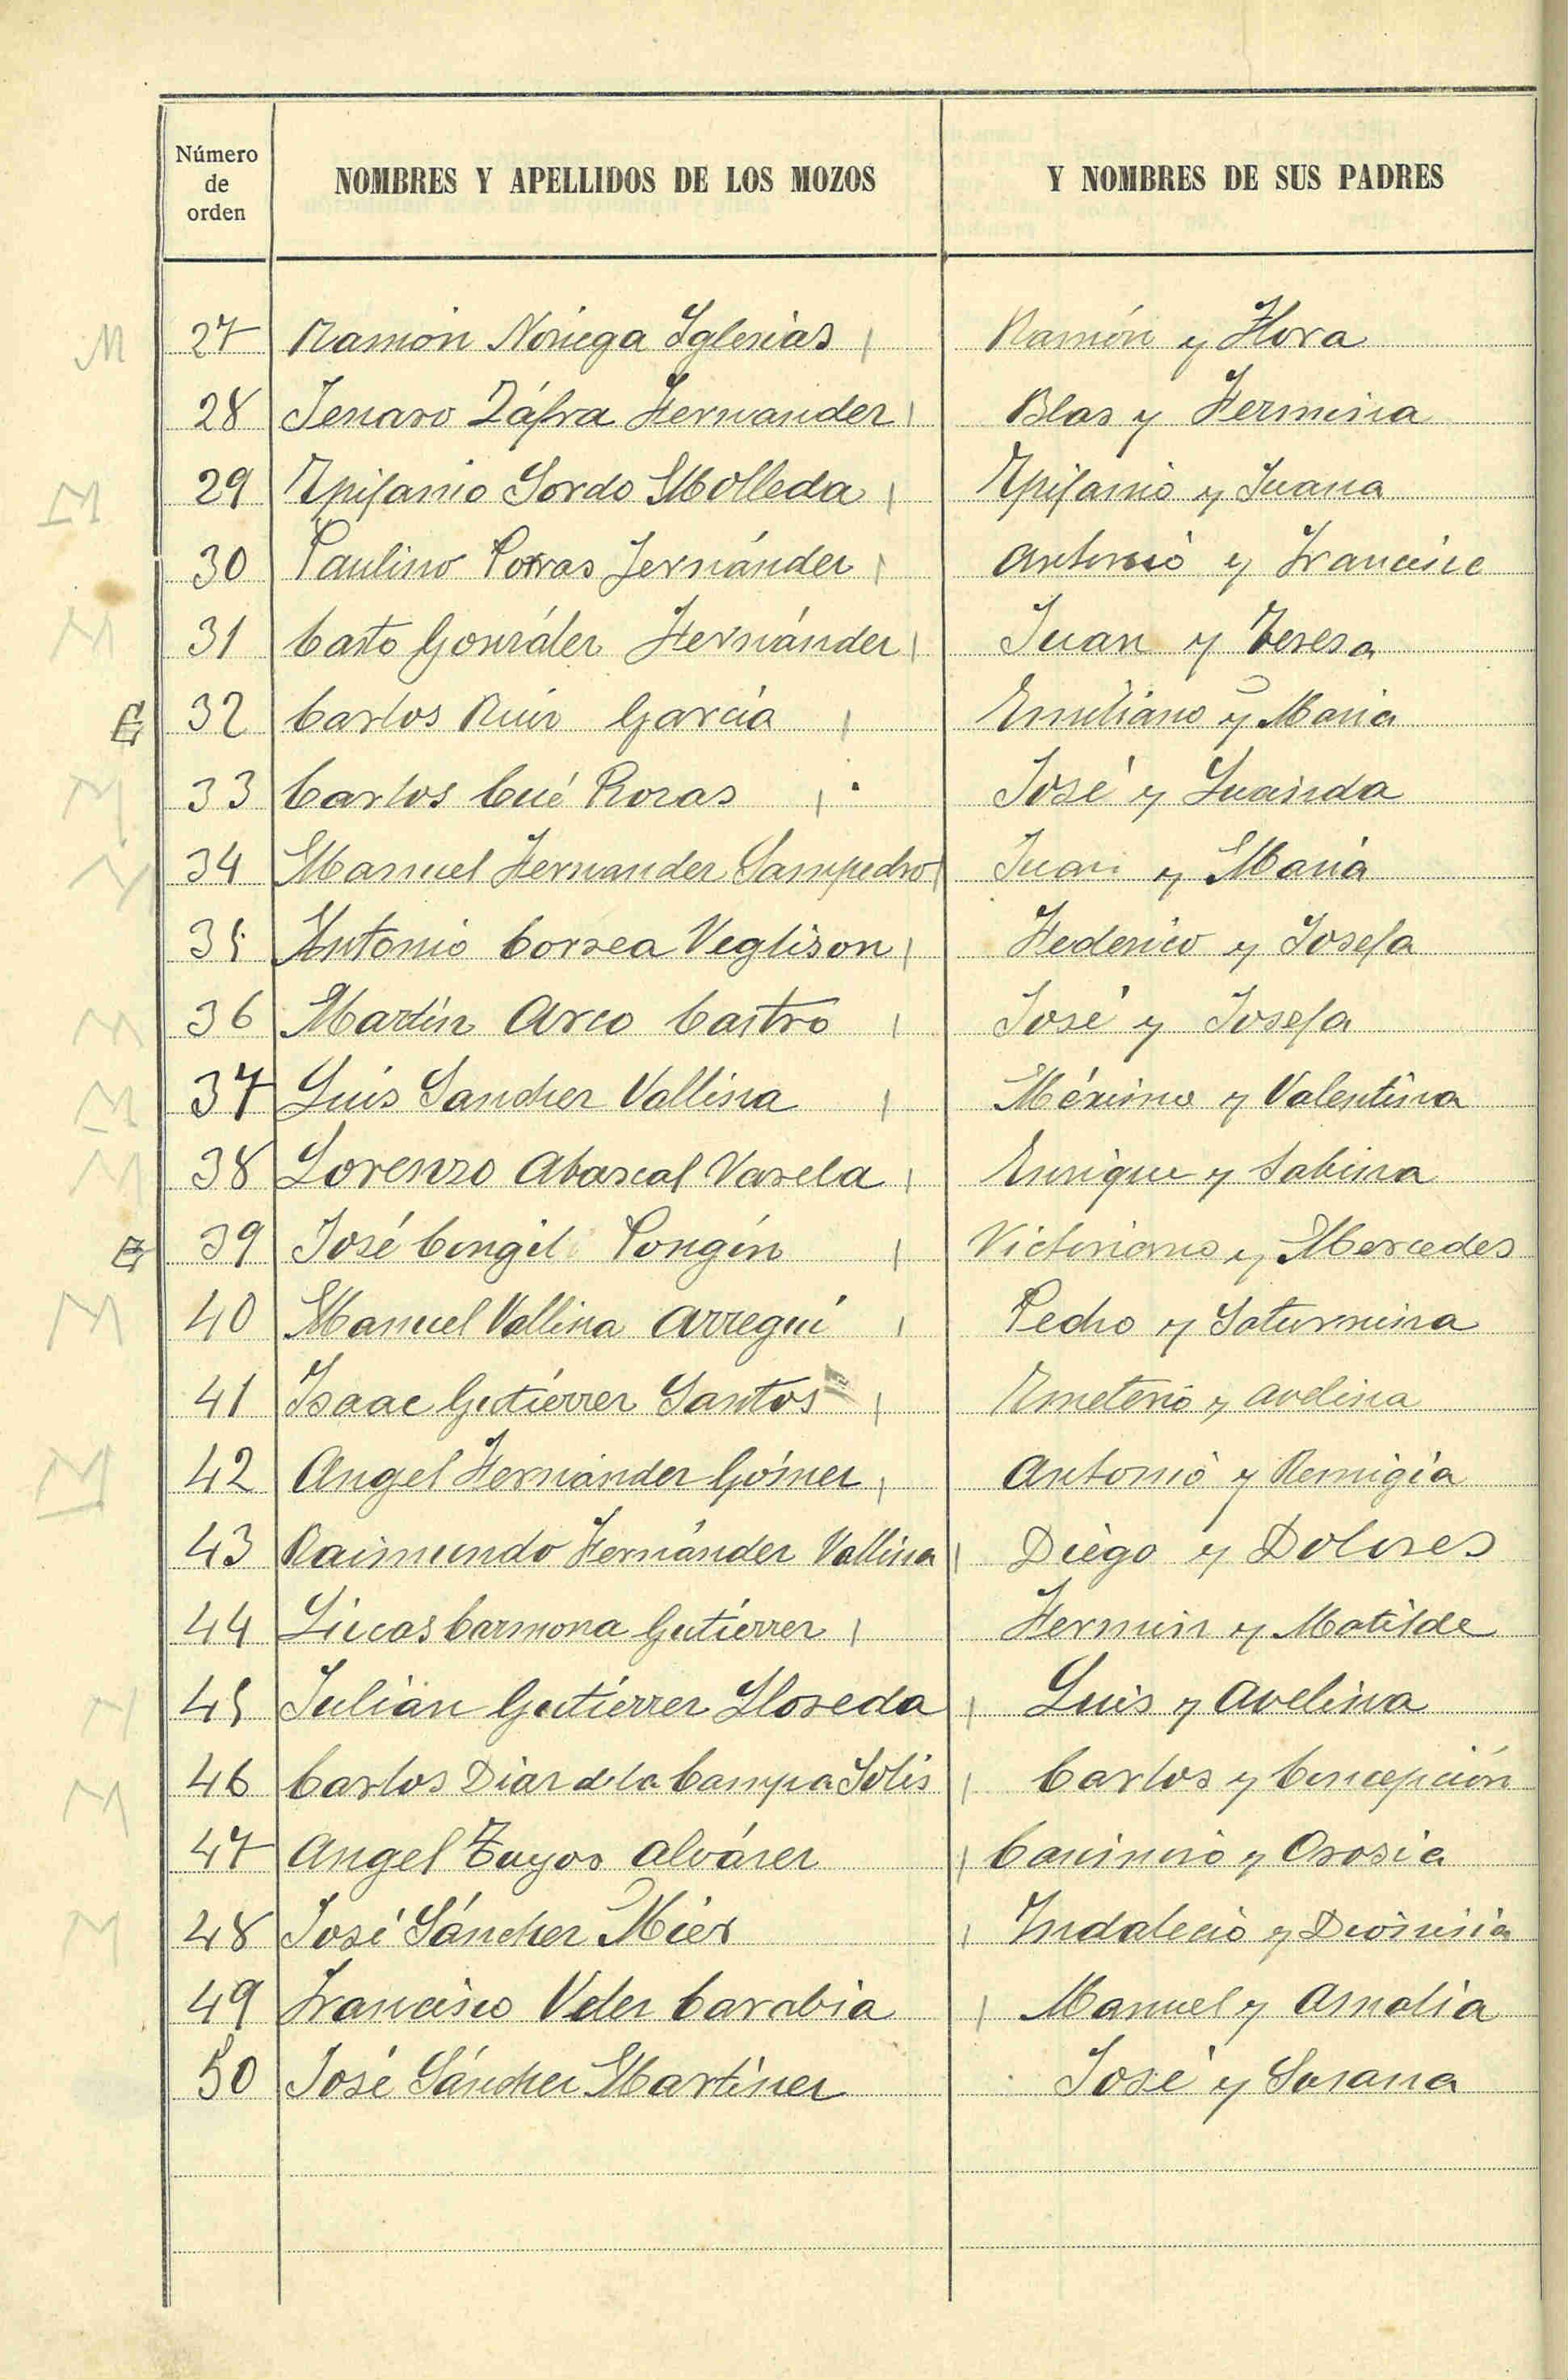 Número de orden
NOMBRES Y APELLIDOS DE LOS MOZOS
Y NOMBRES DE SUS PADRES
M 27 Ramón Noriega Iglesias Ramón y Flora
28 Jenaro Záfra Fernandez Blas y Fermina
M 29 Epifanio Sordo Molleda Epifanio y Juana
30 Paulino Porras Fernández Antonio y Francisc
M 31 Casto González Fernández Juan y Teresa
E 32 Carlos Ruiz García Emiliano y Maria
M 33 Carlos Cué Rozas José y Luzinda
M 34 Manuel Fernandez Sampedro Juan y Maria
35 Antonio Correa Veglison Federico y Josefa
M 36 Martín Arco Castro José y Josefa
M 37 Luis Sanchez Vallina Máximo y Valentina
M 38 Lorenzo Abascal Varela Enrique y Sabina
E 39 José Congil Pongín Victoriano y Mercedes
M 40 Manuel Vallina Arregui Pedro y Saturnina
41 Isaac Gutiérrez Santos Emeterio y Avelina
M 42 Angel Fernández Gómez Antonio y Remigia
43 Raimundo Fernández Vallina Diego y Dolores
44 Lucas Carmona Gutiérrez Fermin y Matilde
M 45 Julián Gutiérrez Lloseda Luis y Avelina
M 46 Carlos Diaz de la Campa Solis Carlos y Concepción
47 Angel Tuyos Alvárez Casimiro y Orosia
M 48 José Sánchez Mier Indalecio y Dionisia
49 Francisco Velez Carabia Manuel y Amalia
50 José Sánchez Martínez José y Susana